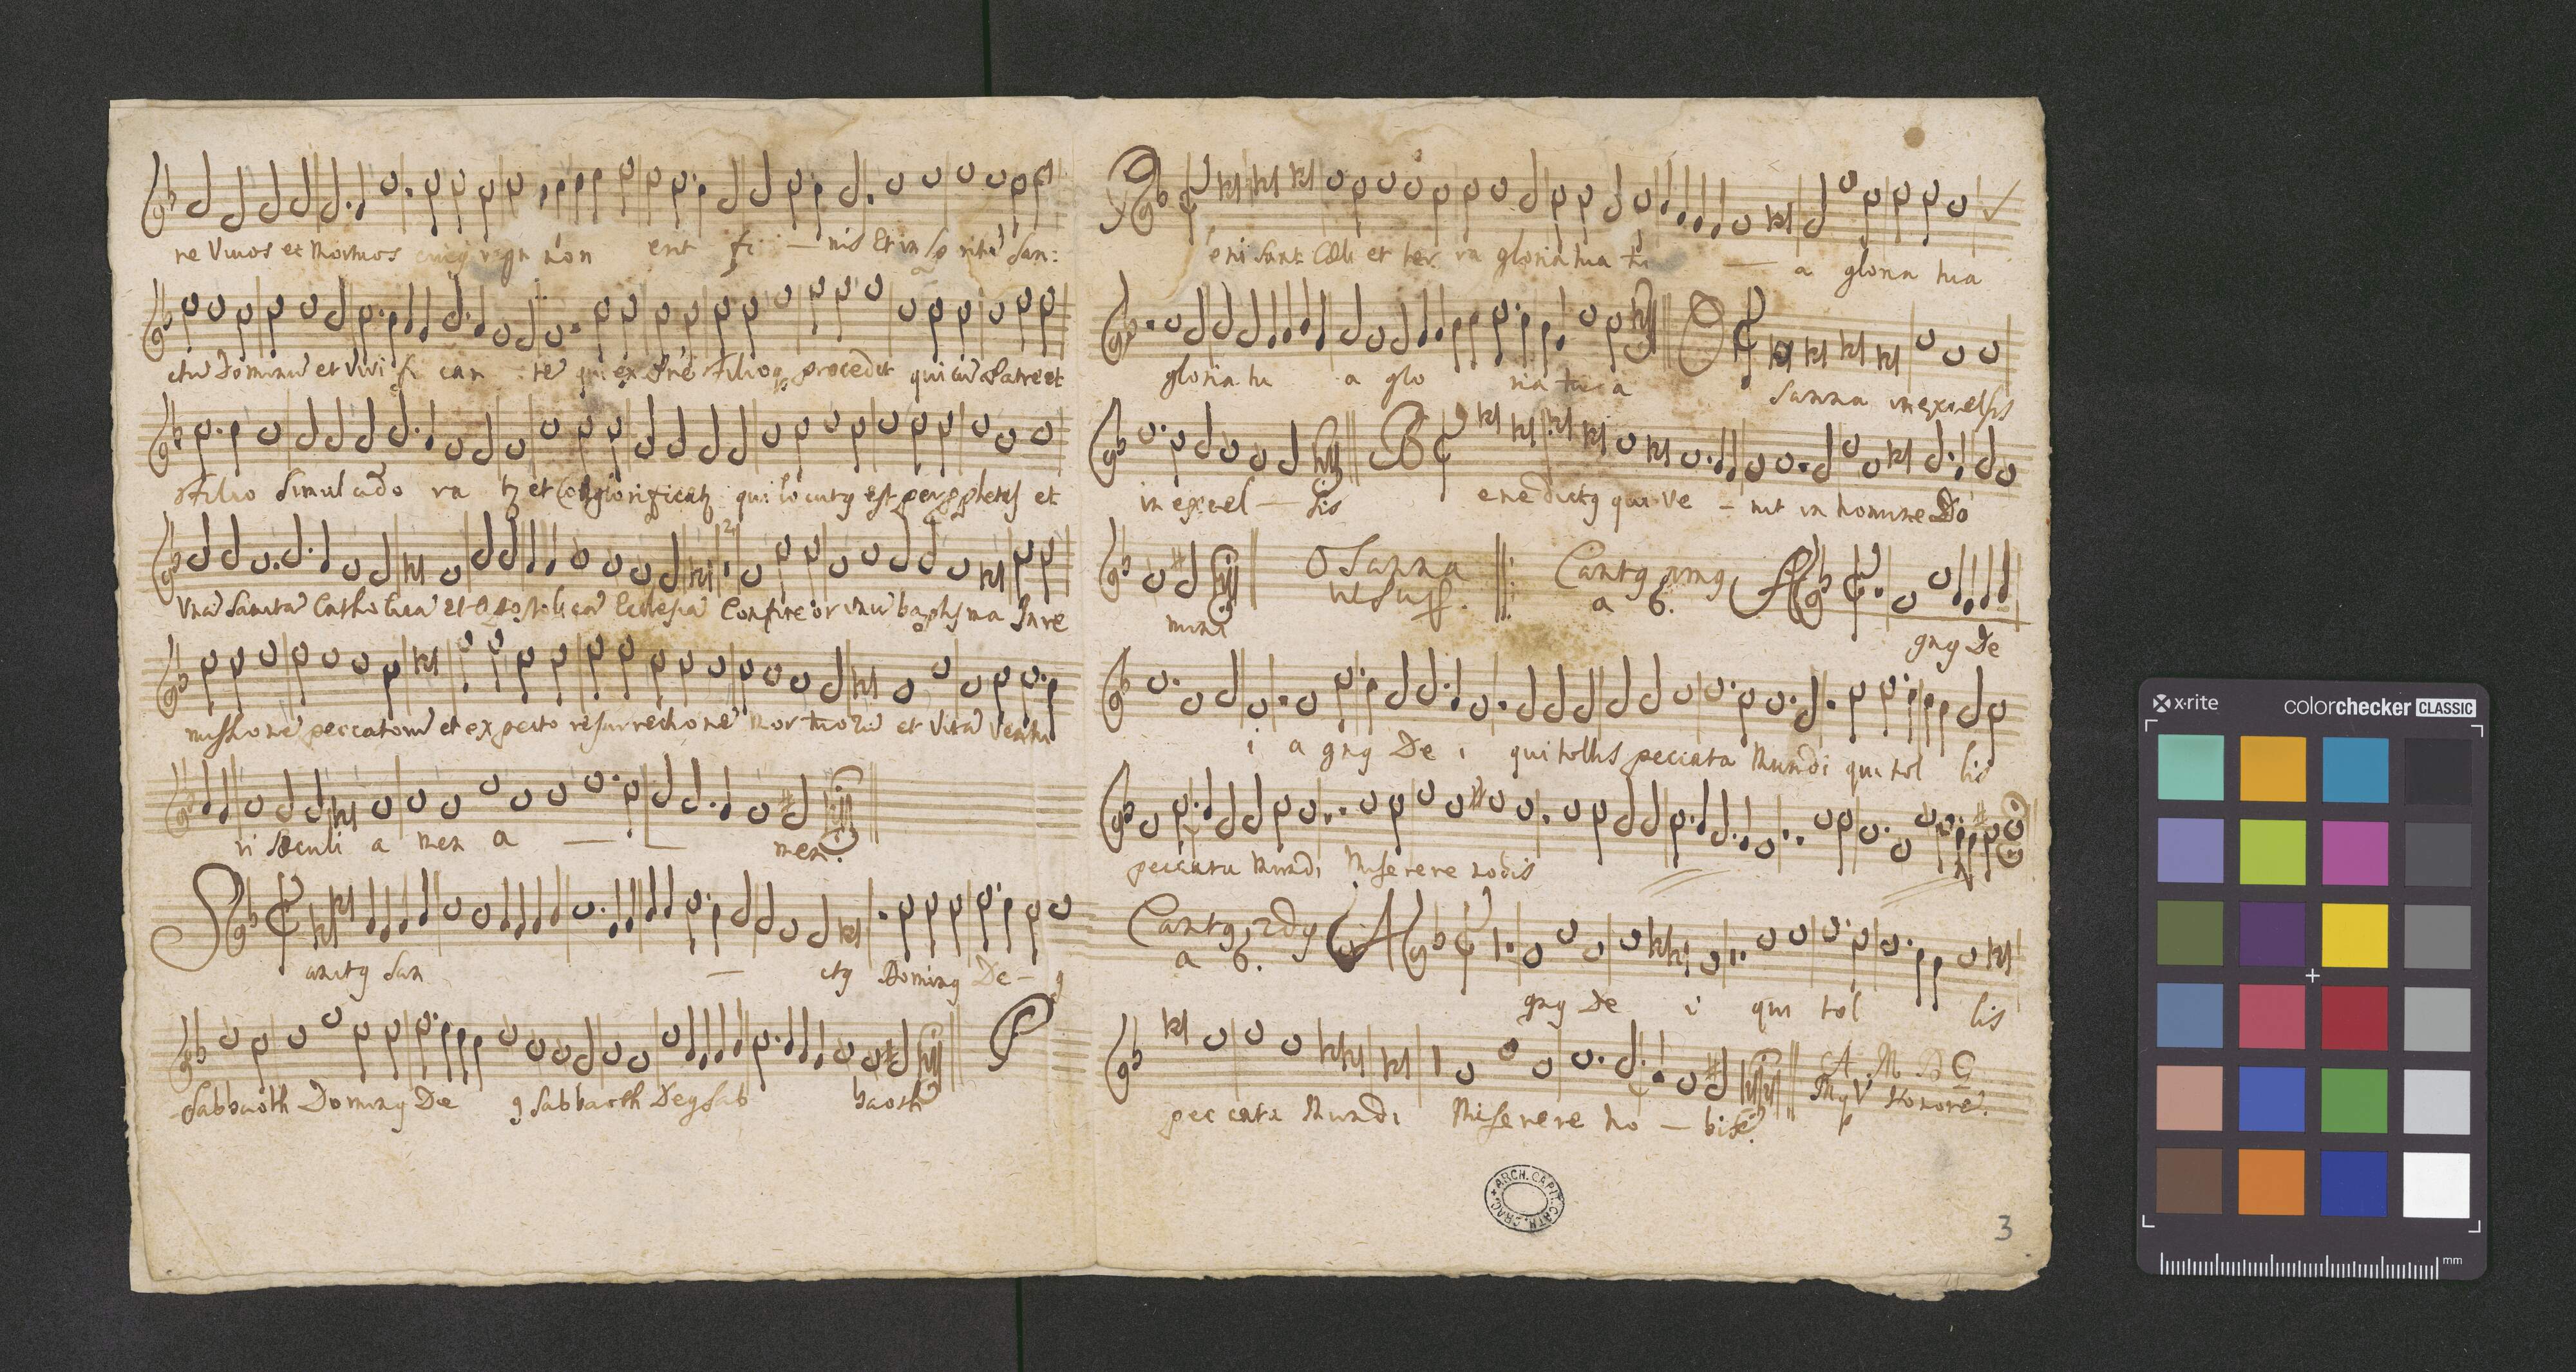 re Vivos et Mortuos cuius regn non erit fi — nis Et in Spritũ San:
ctũ Dominũ et Vivi fi can te qui ex Pre Filioq procedit qui cũ Patre et
Filio Simul ado ra tz et Conglorificatz qui locutq est per pphetas et
Vnã Sanctã Catholicã et Apostolicã Ecclesiã Confiteor vnũ baptisma In re
missionẽ peccatorũ et expecto resurrectionẽ Mortuorũ et Vitã Ventu
ri sæculi a men a — men.
S anctq San — ctq Dominq De — q
Sabbaoth Dominq De q Sabbaoth Deq Sab baoth
P
eni Sunt Cæli et ter ra gloria tua tu — a gloria tua
gloria tu a glo ria tua a O Sanna in excelsis
in excel — sis B enedictq qui ve — nit in nomine Do
mini O Sanna ut sup. Cantq prmq a 6. A gnq De
i a gnq De i qui tollis peccata Mundi qui tol lis
peccata Mundi Miserere nobis
Cantq 2dq a 6. A gnq De i qui tol lis
peccata Mundi Miserere no — bis.
A. M. D G
BMqV Honorẽ.
ARCH. CAPIT. CATH. CRAC.
3
x-rite
colorchecker CLASSIC
mm